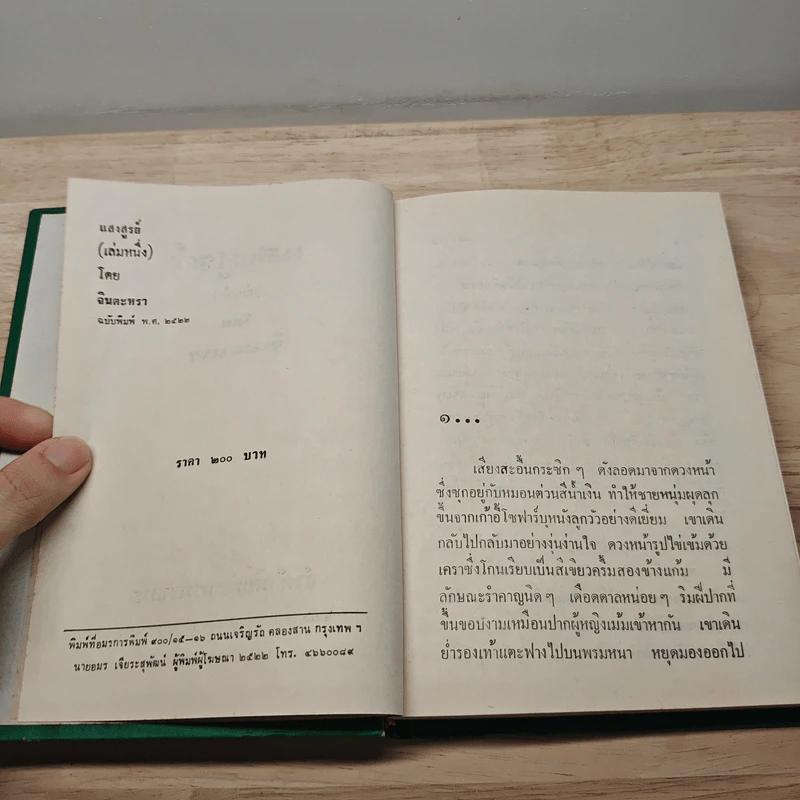 แสงสูรย์
(เล่มหนึ่ง)
โดย
จินตะหรา
ฉบับพิมพ์ พ.ศ. ๒๕๒๒
ราคา ๒๐๐ บาท
พิมพ์ที่อมรการพิมพ์ ๙๐๐/๑๕—๑๖ ถนนเจริญรัถ คลองสาน กรุงเทพ ฯ
นายอมร เจียระสุพัฒน์ ผู้พิมพ์ผู้โฆษณา ๒๕๒๒ โทร. ๔๖๖๐๐๘๙
๑...
เสียงสะอื้นกระซิก ๆ ดังลอดมาจากดวงหน้า
ซึ่งซุกอยู่กับหมอนต่วนสีน้ำเงิน ทำให้ชายหนุ่มผุดลุก
ขึ้นจากเก้าอี้โซฟาร์บุหนังลูกวัวอย่างดีเยี่ยม เขาเดิน
กลับไปกลับมาอย่างงุ่นง่านใจ ดวงหน้ารูปไข่เข้มด้วย
เคราซึ่งโกนเรียบเป็นสีเขียวครึ้มสองข้างแก้ม มี
ลักษณะรำคาญนิด ๆ เดือดดาลหน่อย ๆ ริมฝีปากที่
ขึ้นขอบงามเหมือนปากผู้หญิงเม้มเข้าหากัน เขาเดิน
ย่ำรองเท้าแตะฟางไปบนพรมหนา หยุดมองออกไป